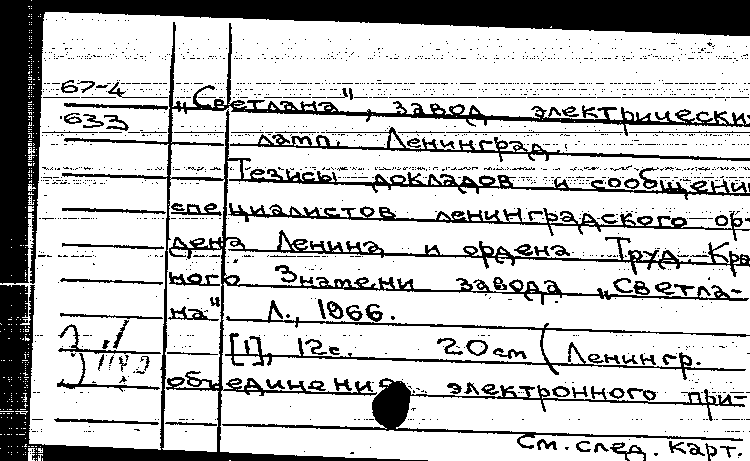 67-4
633
„Светлана", завод электрически
ламп. Ленинград.
Тезисы докладов и сообщени
специалистов ленинградского ор-
дена Ленина и ордена Труд. Кра
ного Знамени завода „Светла-
на". Л., 1966.
[1], 12с. 20см (Ленингр.
объединение электронного при-
См. след. карт.